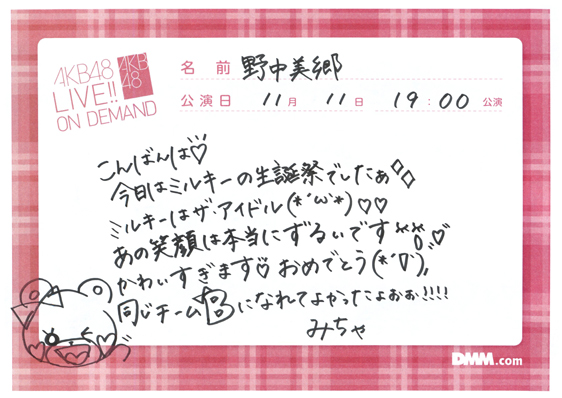 AKB48
LIVE!!
ON DEMAND
AKB
48
名 前 野中美郷
公演日 11月 11日 19:00 公演
こんばんは♡
今日はミルキーの生誕祭でしたぁ
ミルキーはザ・アイドル(*´ω`*)♡♡
あの笑顔は本当にずるいです
かわいすぎます♡おめでとう(*´∇`)
同じチームBになれてよかったよぉぉ!!!!
みちゃ
DMM.com